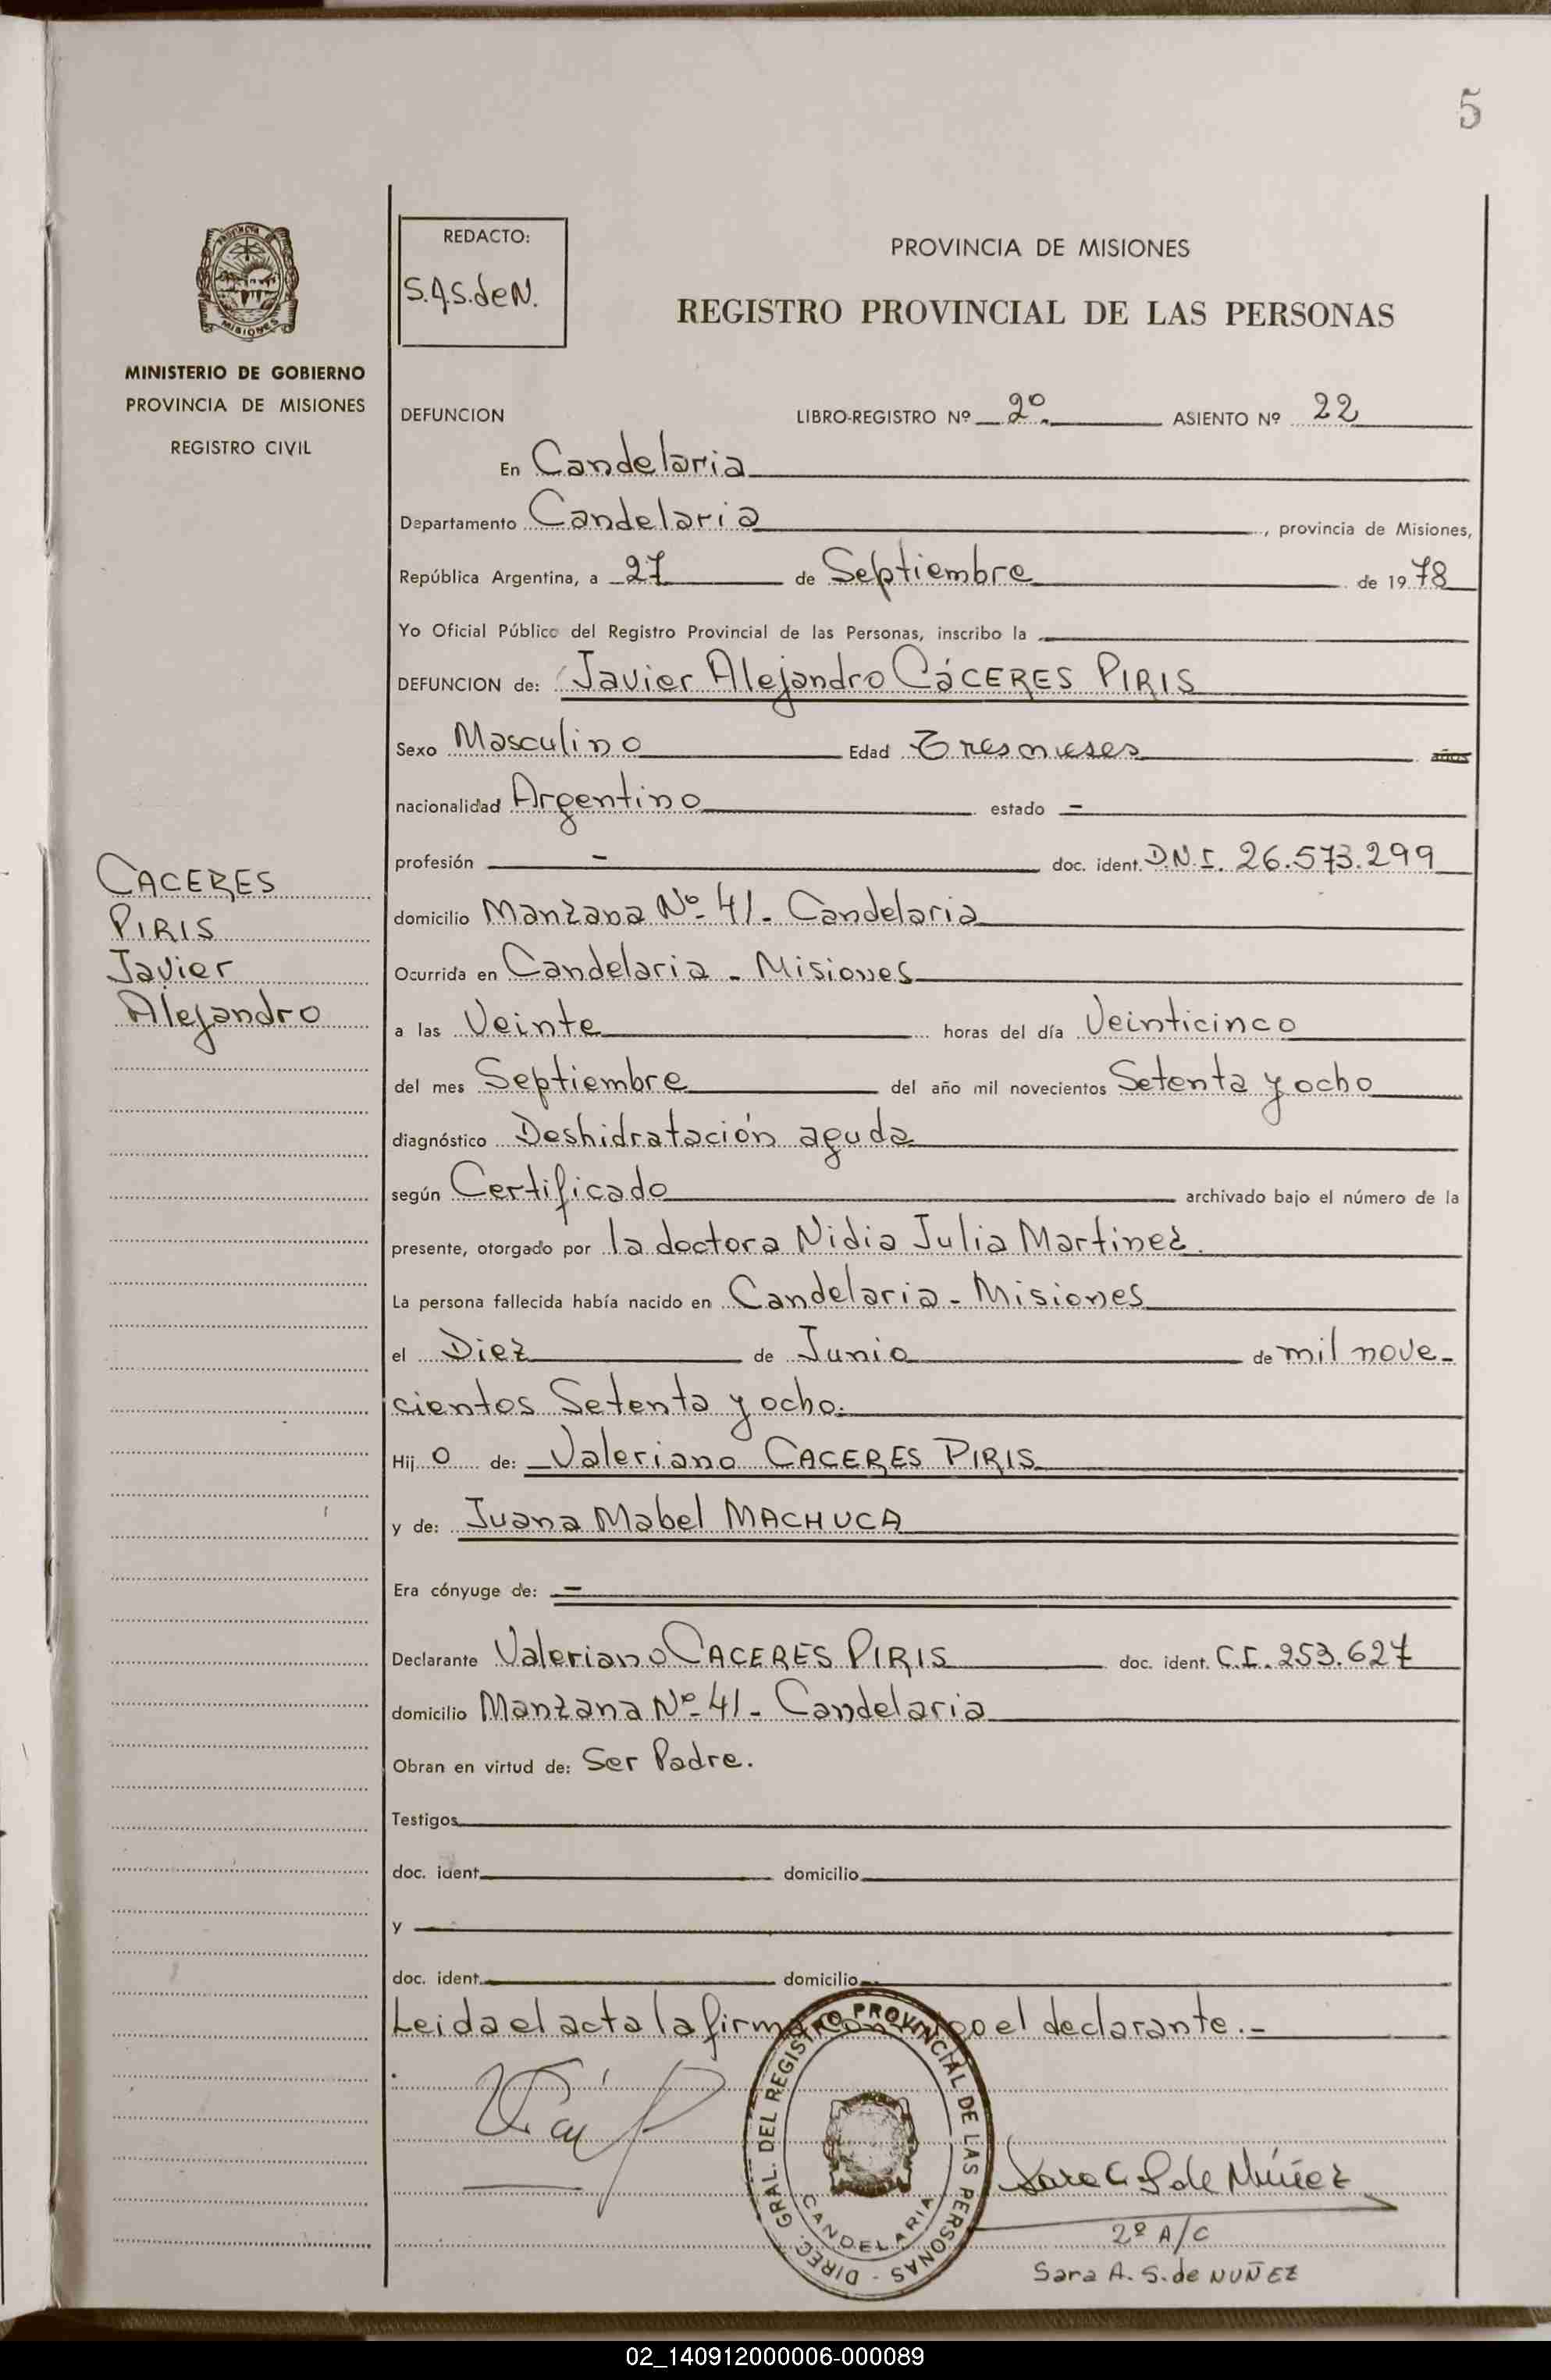 5
REDACTO:
S.A.S.deN.
PROVINCIA DE MISIONES
REGISTRO PROVINCIAL DE LAS PERSONAS
PROVINCIA
MISIONES
MINISTERIO DE GOBIERNO
PROVINCIA DE MISIONES
REGISTRO CIVIL
DEFUNCION LIBRO-REGISTRO Nº 2º. ASIENTO Nº 22
En Candelaria
Departamento Candelaria, provincia de Misiones,
República Argentina, a 27 de Septiembre de 1978
Yo Oficial Público del Registro Provincial de las Personas, inscribo la
DEFUNCION de: Javier Alejandro CáCERES PIRIS
Sexo Masculino Edad Tres meses años
nacionalidad Argentino estado -
profesión - doc. ident. D.N.I. 26.573.299
CACERES
PIRIS
Javier
Alejandro
domicilio Manzana Nº 41- Candelaria
Ocurrida en Candelaria - Misiones
a las Veinte horas del día Veinticinco
del mes Septiembre del año mil novecientos Setenta y ocho
diagnóstico Deshidratación aguda
según Certificado archivado bajo el número de la
presente, otorgado por la doctora Nidia Julia Martinez.
La persona fallecida había nacido en Candelaria - Misiones
el Diez de Junio de mil nove-
cientos Setenta y ocho.
Hijo de: Valeriano CACERES PIRIS
y de: Juana Mabel MACHUCA
Era cónyuge de: -
Declarante Valeriano CACERES PIRIS doc. ident. C.I. 253.627
domicilio Manzana Nº 41- Candelaria
Obran en virtud de: Ser Padre.
Testigos
doc. ident. domicilio
y
doc. ident. domicilio
Leida el acta la firma conmigo el declarante.-
DIREC. GRAL. DEL REGISTRO PROVINCIAL DE LAS PERSONAS -
CANDELARIA
Sara A. S. de Núñez
2º A/C
Sara A. S. de NUÑEZ
02_140912000006-000089